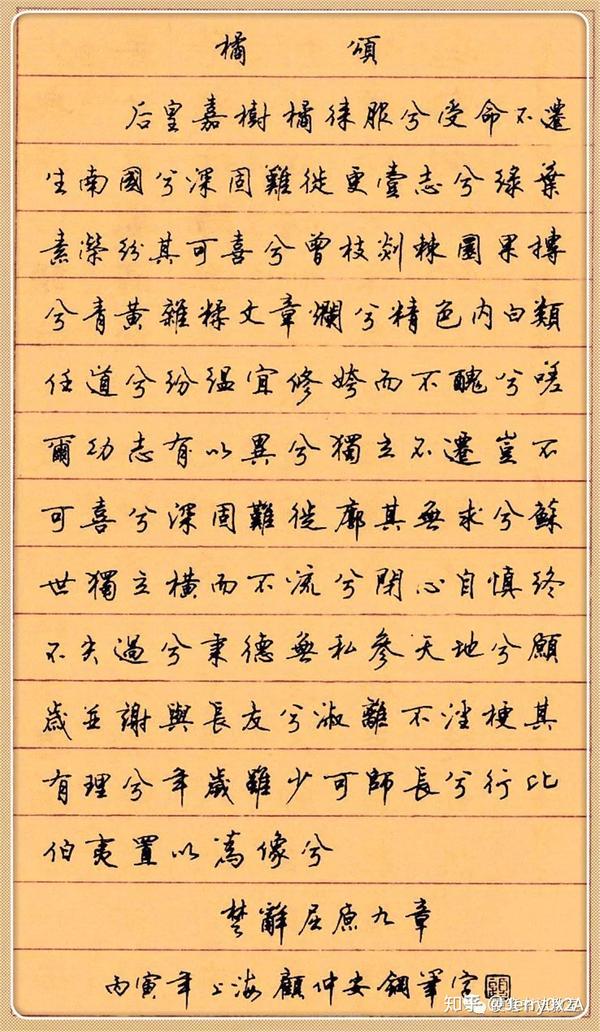 橘頌
后皇嘉樹橘徠服兮受命不遷
生南國兮深固難徙更壹志兮綠葉
素榮紛其可喜兮曾枝剡棘圜果摶
兮青黃雜糅文章爛兮精色內白類
任道兮紛緼宜修姱而不醜兮嗟
爾幼志有以異兮獨立不遷豈不
可喜兮深固難徙廓其無求兮蘇
世獨立橫而不流兮閉心自慎終
不失過兮秉德無私參天地兮願
歲並謝與長友兮淑離不淫梗其
有理兮年歲雖少可師長兮行比
伯夷置以為像兮
楚辭屈原九章
丙寅年上海顧仲安鋼筆字
知乎